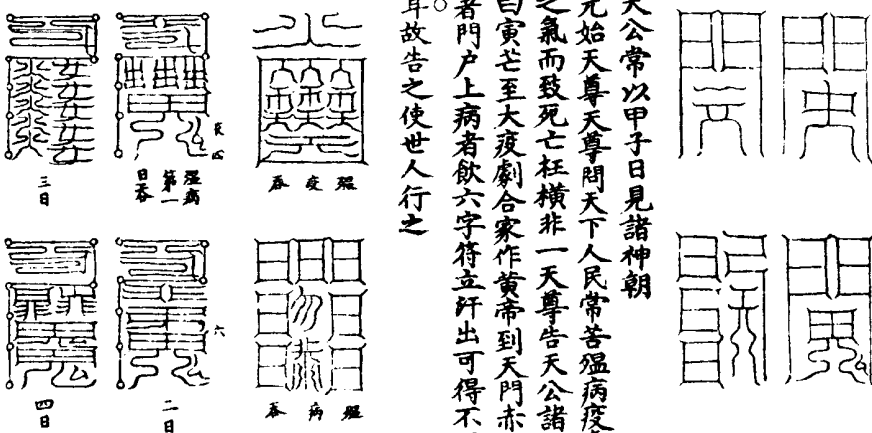 天公常以甲子日見諸神朝
元始天尊天尊問天下人民常苦殟病疫
之氣而致死亡枉橫非一天尊告天公諸
曰寅芒至大疫劇合家作黃帝到天門赤
者門戶上病者飲六字符立汗出可得不
耳故告之使世人行之
殟疫吞
殟病吞
殟病
第一
日吞
六
二日
三日
四日